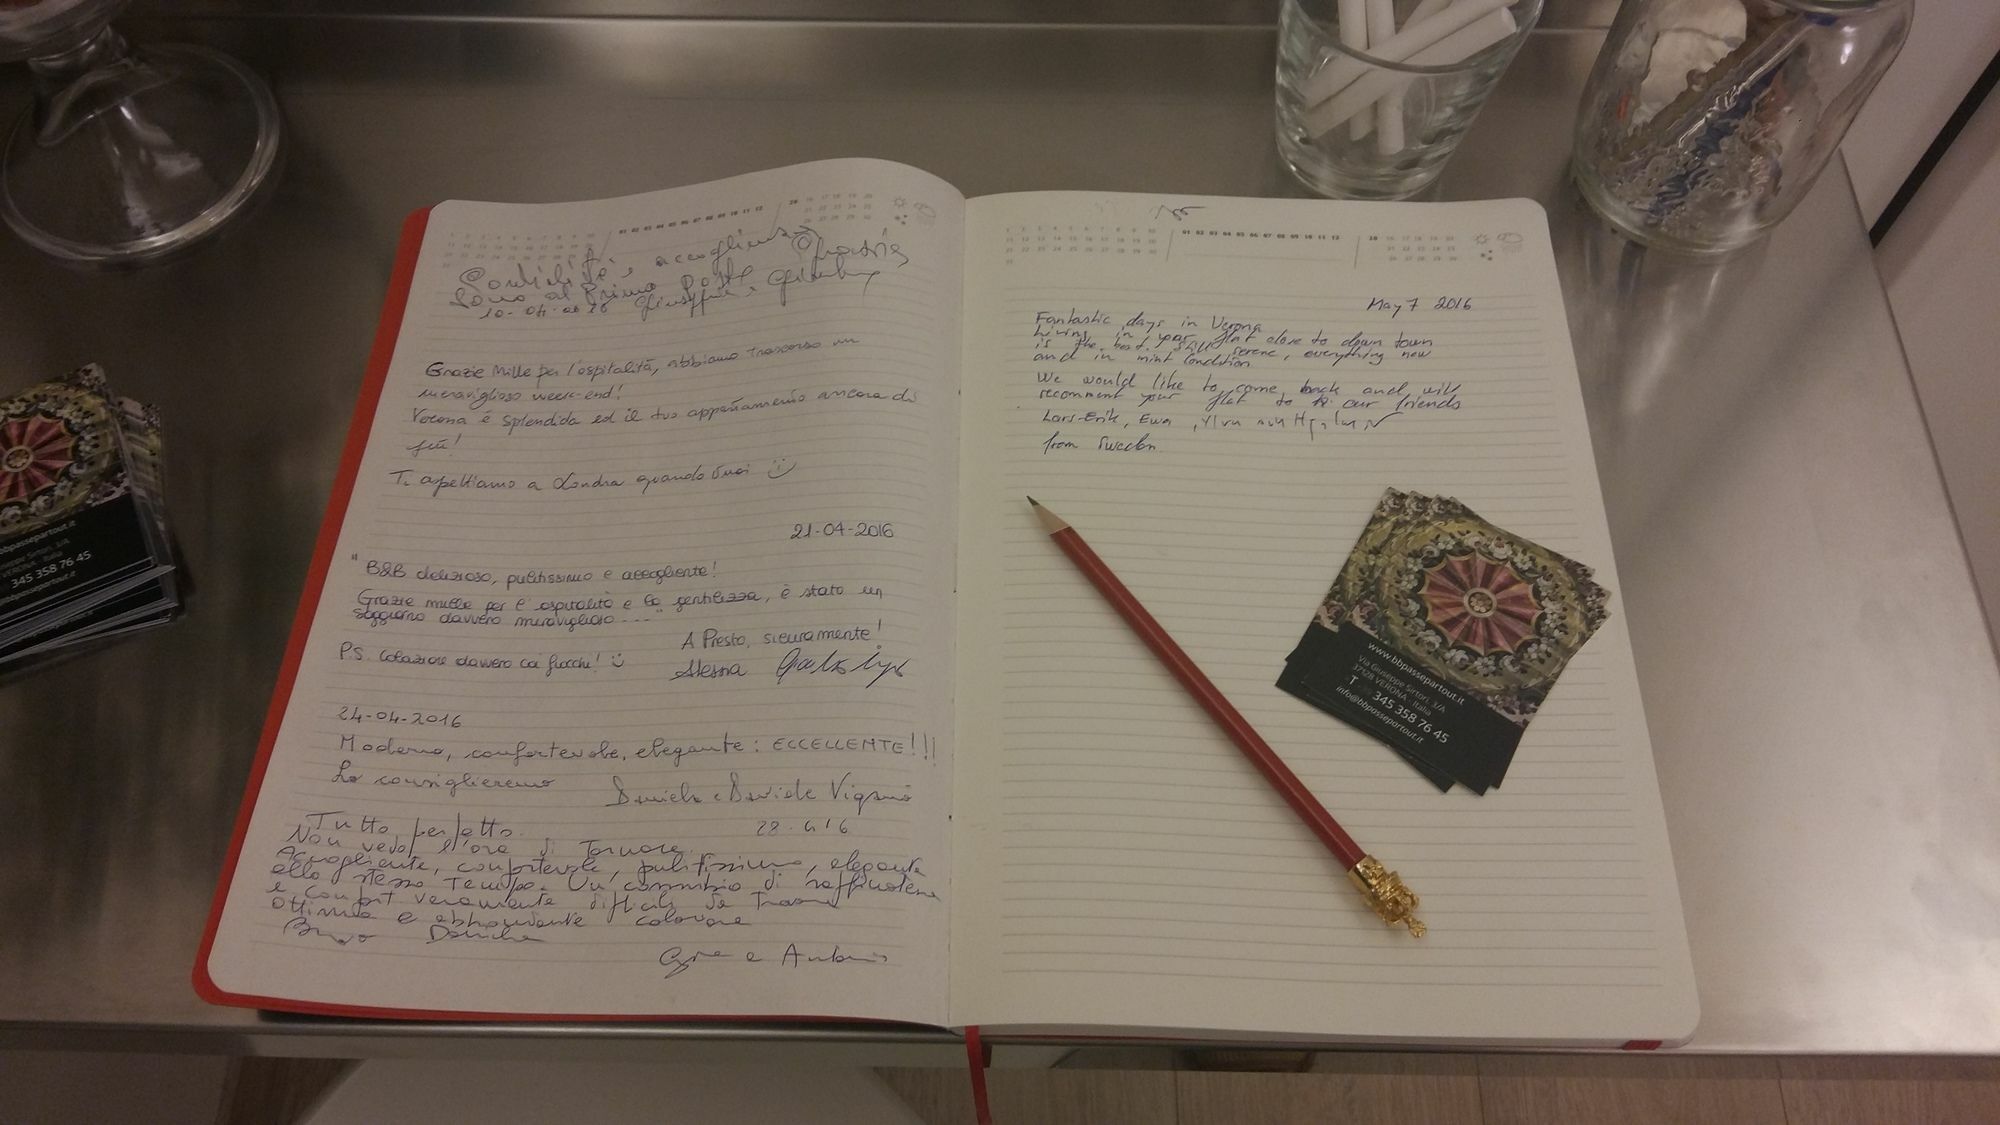 Cordialità e accoglienza
Sono al Primo Posto Grazie
10-04-2016 Giuseppe e
Grazie Mille per l'ospitalità, abbiamo trascorso un
meraviglioso week-end!
Verona è splendida ed il tuo appartamento ancora di
più!
Ti aspettiamo a Londra quando vuoi
21-04-2016
"B&B delizioso, pulitissimo e accogliente!
Grazie mille per l'ospitalità e la gentilezza, è stato un
soggiorno davvero meraviglioso...."
A Presto, sicuramente!
P.S. Colazione davvero coi fiocchi!
24-04-2016
Moderno, confortevole, elegante: ECCELLENTE!!!
Lo consiglieremo
Daniela e Davide Viganò
Tutto perfetto.
28.4.16
Non vedo l'ora di Tornare.
Accogliente, confortevole, pulitissimo, elegante
allo stesso Tempo. Un connubio di raffinatezza
e confort veramente difficile da Trovare
Ottima e abbondante colazione
Brava Daniela
May 7 2016
Fantastic days in Verona
Living in your flat close to down town
is the best. Still serene, everything new
and in mint condition
We would like to come back and will
recomment your flat to our friends
Lars-Erik, Ewa
from Sweden
www.bbpassepartout.it
Via Giuseppe Sirtori, 3/A
37128 VERONA Italia
T 345 358 76 45
info@bbpassepartout.it
bbpassepartout.it
Giuseppe Sirtori, 3/A
VERONA Italia
345 358 76 45
bbpassepartout.it